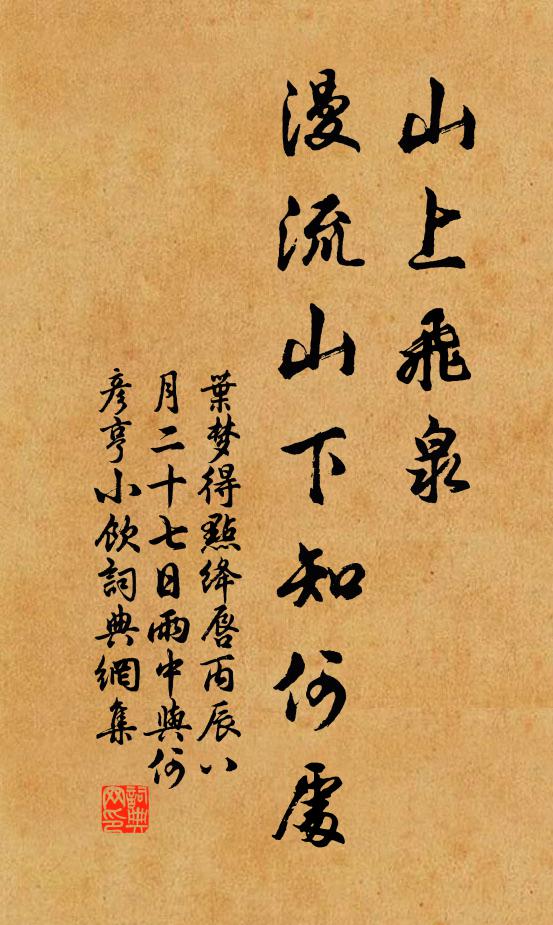 山上飛泉
漫流山下知何處
葉梦得點绛唇丙辰八
月二十七日雨中與何
彦亨小飲詞典網集
詞典
网印